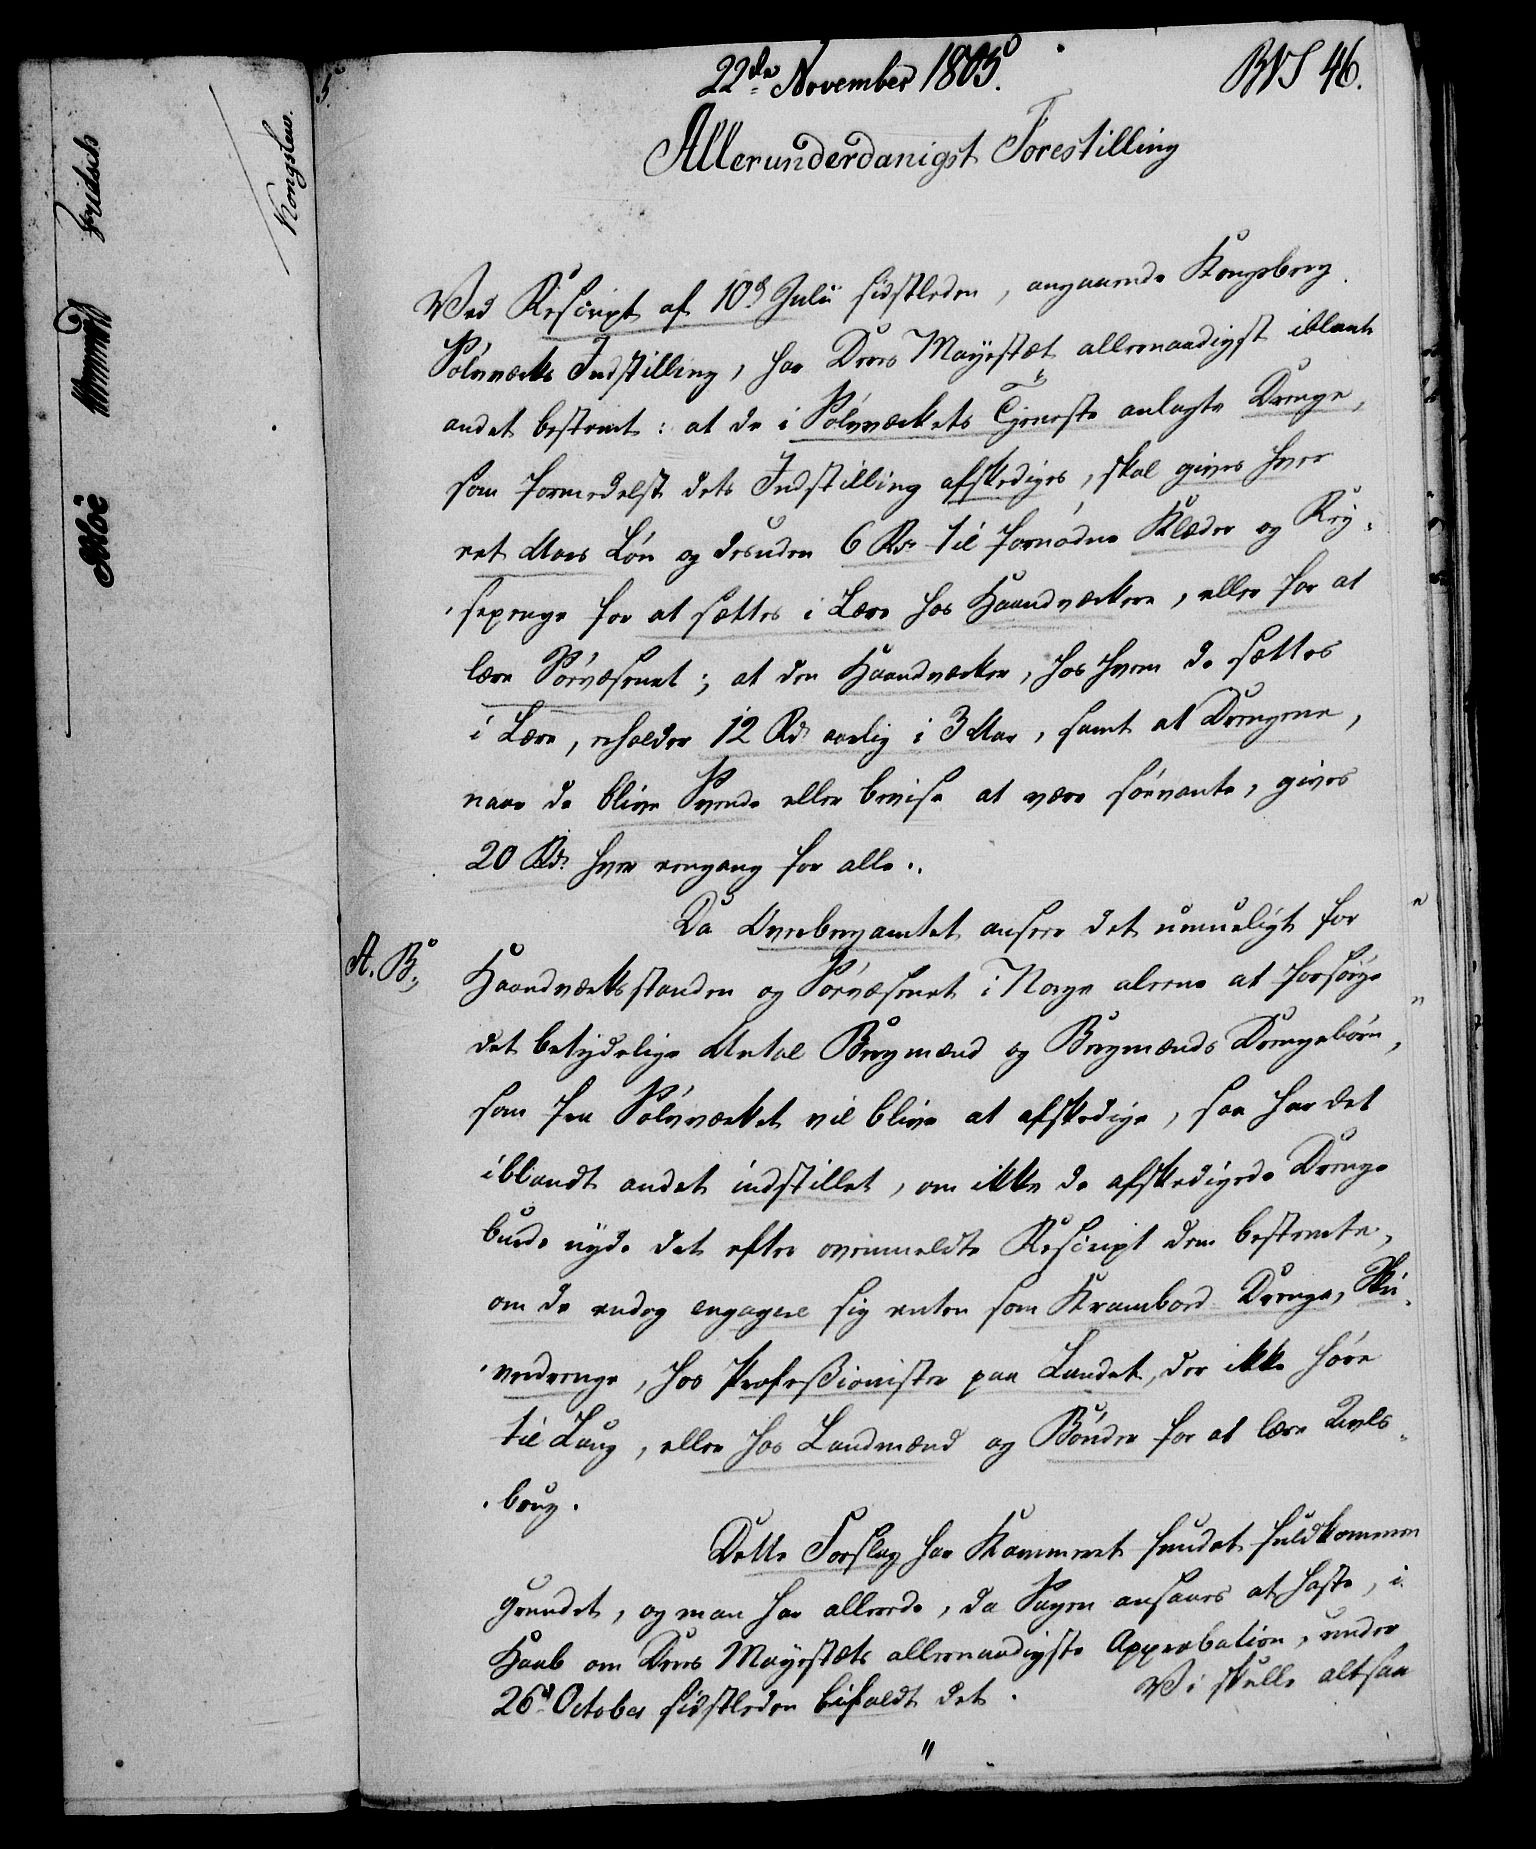 22de November 1805.
BVS 46.
Allerunderdanigst Forestilling
Ved Rescript af 10d Julii sidstleden, angaaende Kongsberg
Sölvværks Indstilling, har Deres Mayestæt allernaadigst iblant
andet bestemt: at de i Sölvværkets Tjeneste anlagte Drenge,
som formedelst dets Indstilling afskediges, skal gives hver
eet Aars Lön og desuden 6 Rd. til fornödne Klæder og Rey-
sepenge for at sættes i Lære hos Haandværkere, eller for at
lære Söevæsenet; at den Haandværker, hos hvem de sættes
i Lære, erholder 12 Rd. aarlig i 3 Aar, samt at Drengene,
naar de blive Svende eller bevise at være söevante, gives
20 Rd. hver eengang for alle.
Da Overbergamtet anseer det umueligt for
A. B.
Haandværksstanden og Söevæsenet i Norge alleene at forsörge
det betydelige Antal Bergmænd og Bergmænds Drengebörn,
som fra Sölvværket vil blive at afskedige, saa har det
iblandt andet indstillet, om ikke de afskedigede Drenge
burde nyde det efter ovenmeldte Rescript dem bestemte,
om de endog engagere sig enten som Krambod Drenge, Skri-
verdrenge, hos Profeßionister paa Landet, der ikke höre
til Laug, eller hos Landmænd og Bönder for at lære Avls-
brug.
Dette Forslag har Kammeret fundet fuldkommen
grundet, og man har allerede, da Sagen ansaaes at haste, i
Haab om Deres Mayestæts allernaadigste Approbation, under
26d October sidstleden bifaldt det.
Vi skulle altsaa
"
Kongslew.
Fridsch
Moe